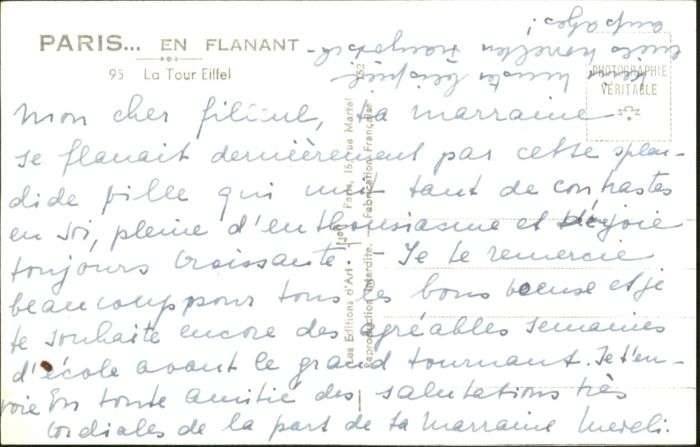 PARIS... EN FLANANT
95 La Tour Eiffel
PHOTOGRAPHIE
VÉRITABLE
Mon cher filleul, ta marraine
se flanait dernièrement par cette splen-
dide ville qui unit tant de contrastes
en soi, pleine d'enthousiasme et de joie
toujours croissante. - Je te remercie
beaucoup pour tous les bons et je
te souhaite encore des agréables semaines
d'école avant le grand tournant. Je t'en-
voie en toute amitié des salutations très
cordiales de la part de ta marraine Meieli.
Les Editions d'Art Paris, 16, rue Martel
Reproduction Interdite. Fabrication Française